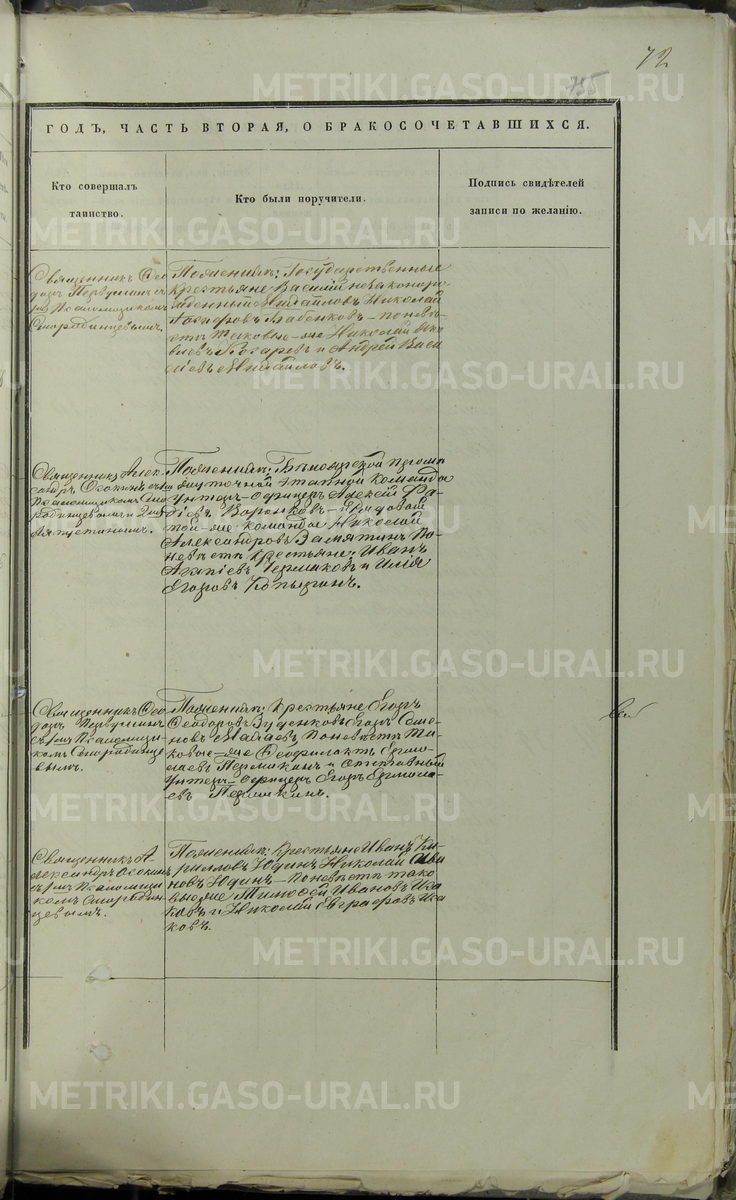 72
755
ГОДЪ, ЧАСТЬ ВТОРАЯ, О БРАКОСОЧЕТАВШИХСЯ.
Кто совершалъ
таинство.
Кто были поручители.
Подпись свидѣтелей
записи по желанію.
Священникъ Ѳео
доръ Первушинъ съ
Псаломщикомъ
Смородинцевымъ.
По женихѣ: Государственные
крестьяне Василій
Михайловъ Николай
Бабенковъ – по невѣ-
стѣ таковые-же Николай Яков
левъ Косаревъ и Андрей Васи
ліевъ Михайловъ.
Священникъ Алек
сандръ Осокинъ съ
Псаломщикомъ Смо
родинцевымъ и
По женихѣ: Бѣлоярской
этапной команды
Унтеръ-Офицеръ Алексѣй
Воронковъ – рядовой
той-же команды Николай
Александровъ Замятинъ По
невѣстѣ крестьяне: Иванъ
Агапіевъ Чермаковъ и Илія
Егоровъ Копыринъ.
Священникъ Ѳео
доръ Первушинъ
съ Псаломщи
комъ Смородинце
вымъ.
По женихѣ: крестьяне Егоръ
Ѳеодоровъ Зуденковъ Егоръ Семе
новъ По невѣстѣ Та
ковые-же Ѳеофилактъ Ермо
лаевъ Пермикинъ и Отставный
Унтеръ-Офицеръ Егоръ Ермола
евъ Пермикинъ.
Священникъ А
лександръ Осокинъ
съ Псаломщи
комъ Смородин
цевымъ.
По женихѣ: крестьяне Иванъ Ки
рилловъ Юдинъ Николай Ива
новъ Юдинъ – По невѣстѣ тако
вые же Тимофей Ивановъ Иса
ковъ и Николай Евграфовъ Иса
ковъ.
METRIKI.GASO-URAL.RU